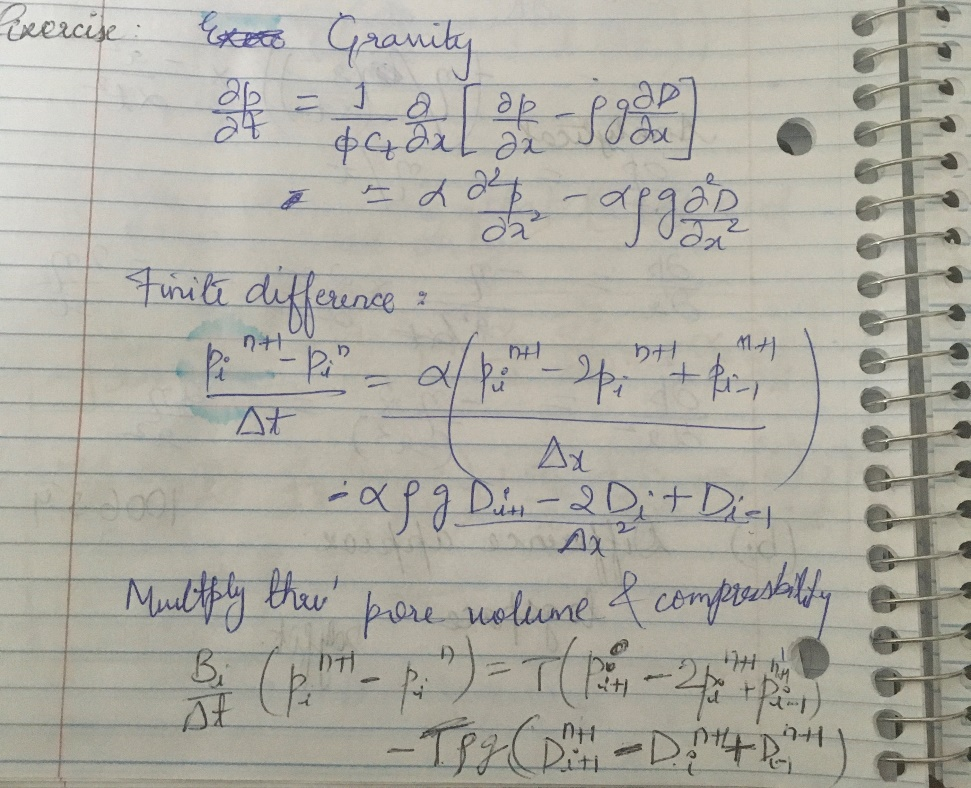 Exercise: Gravity
∂p/∂t = 1/(φ c_t) ∂/∂x [ ∂p/∂x − ρg ∂D/∂x ]
= α ∂²p/∂x² − αρg ∂²D/∂x²
Finite difference :
(p_i^{n+1} − p_i^n)/Δt = α( (p_i^{n+1} − 2p_i^{n+1} + p_{i-1}^{n+1})/Δx )
− αρg (D_{i+1} − 2D_i + D_{i-1})/Δx²
Multply thru' pore volume & compressbility
B_i/Δt (p_i^{n+1} − p_i^n) = T(p_{i+1} − 2p_i^{n+1} + p_{i-1}^{n+1})
− Tρg(D_{i+1}^{n+1} − D_i^{n+1} + D_{i-1}^{n+1})